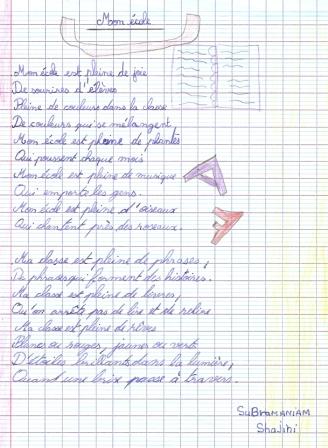 Mon école
Mon école est pleine de joie
De sourires d'élèves
Pleine de couleurs dans la classe
De couleurs qui se mélangent
Mon école est pleine de plantes
Qui poussent chaque mois
Mon école est pleine de musique
Qui emporte les gens.
Mon école est pleine d'oiseaux
Qui chantent près des roseaux.
Ma classe est pleine de phrases,
De phrases qui forment des histoires.
Ma classe est pleine de livres,
Qu'on arrête pas de lire et de relire
Ma classe est pleine de rêves
Blancs ou rouges, jaunes ou verts
D'étoiles brillants dans la lumière,
Quand une brix passe à travers.
SUBRAMANIAM
Shajini